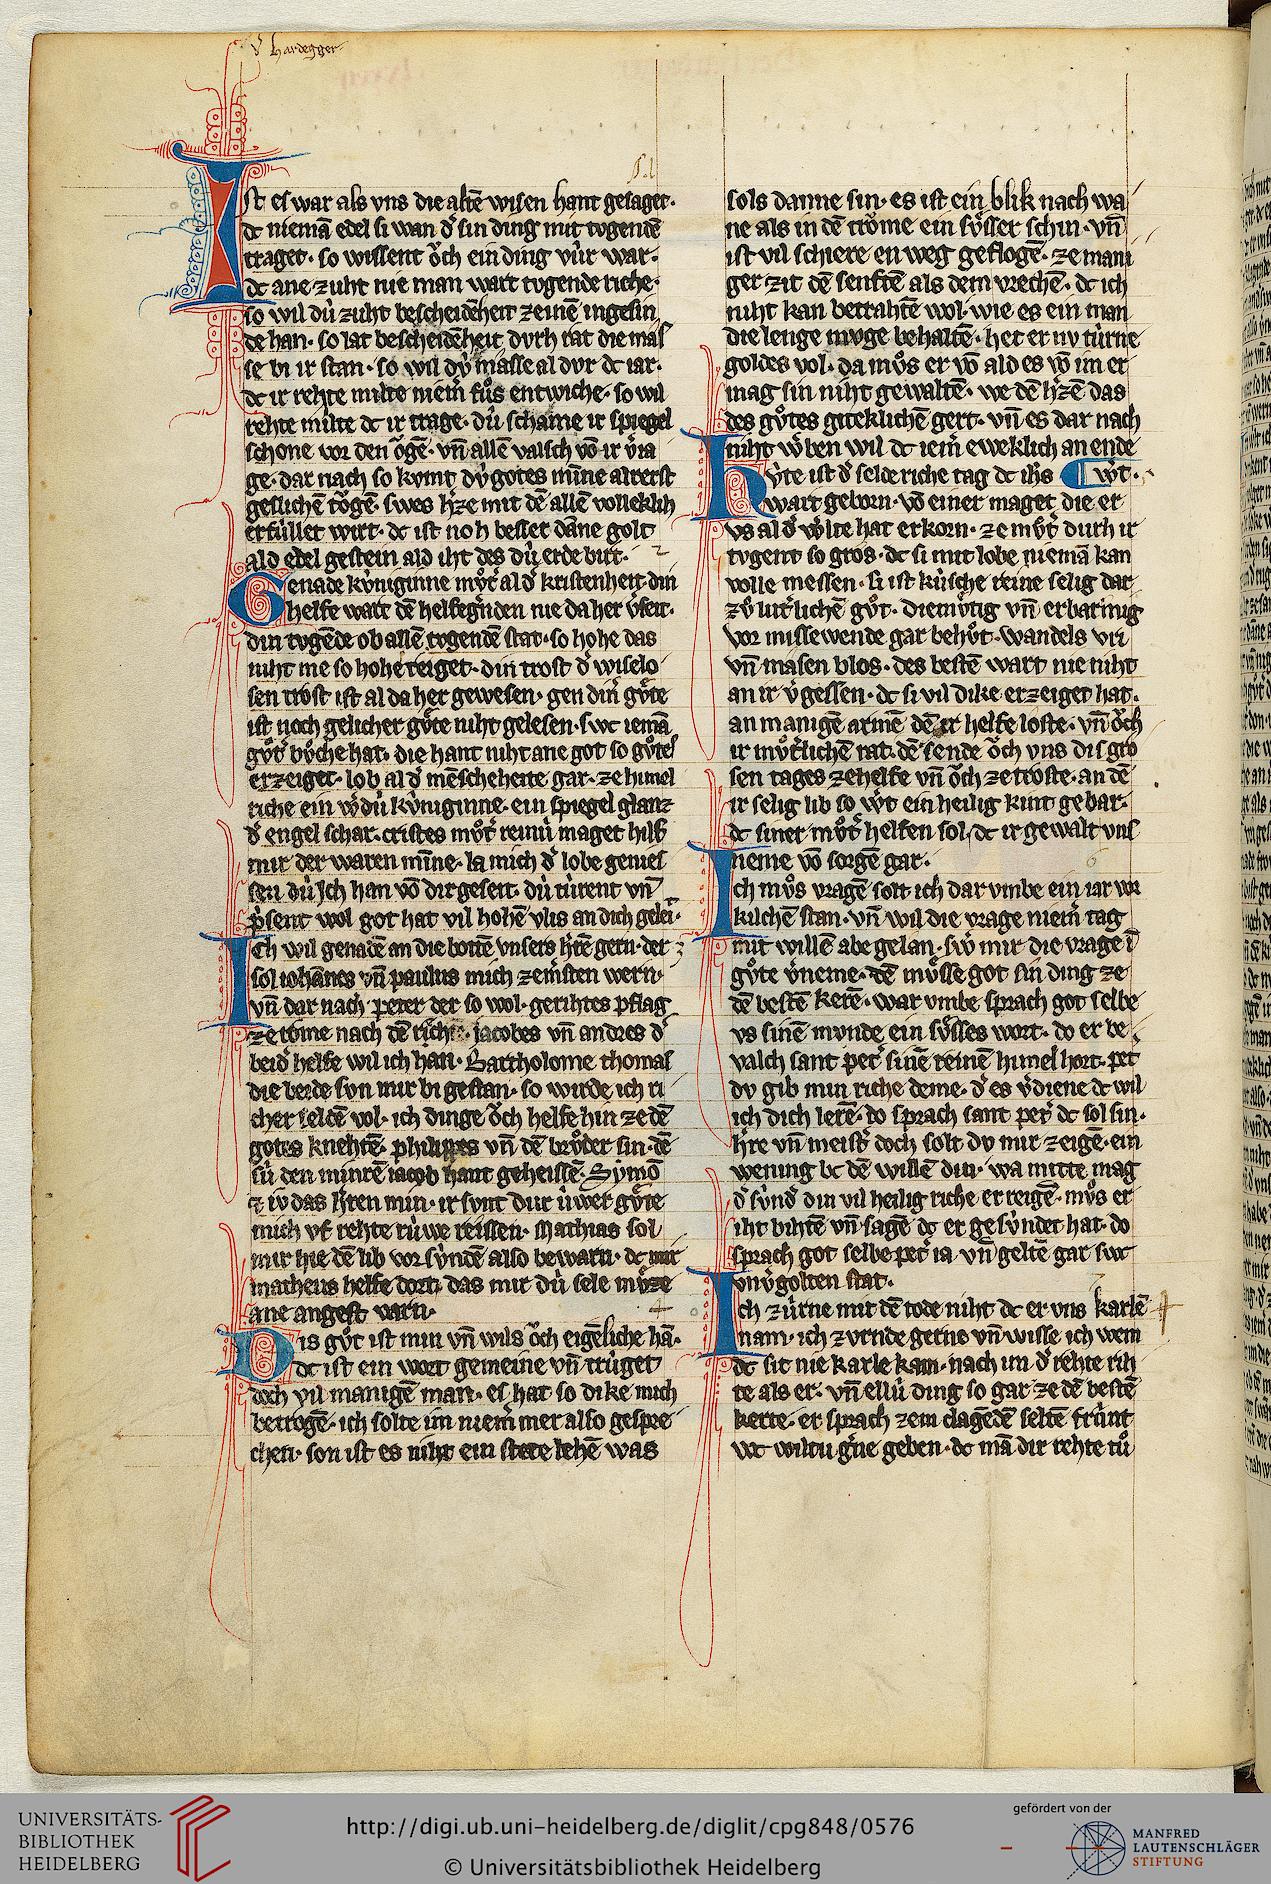 v̾ hardegger
Ist es war als vns die altē wisen hant gesaget·
dc niemā edel si wan d̾ sin ding mit tvgendē
traget· so wissent oͮch ein ding vúr war·
dc ane zuht nie man wart tvgende riche·
so wil dú zuht bescheidēheit zeinē ingesin
de han· so lat bescheidēheit dvrh rat die mas
se bi ir stan· so wil dv́ masse al dvr dc iar·
dc ir rehte milte niem̾ fuͦs entwiche· so wil
rehte milte dc ir trage· dú schame ir spiegel
schone vor den oͮgē· vn̄ allē valsch vō ir v̾ia
ge· dar nach so kvmt dv́ gotes mīne alrerst
geslichē toͮgē· swes h̾ze mit dē allē volleklih
erfúllet wirt· dc ist noh besser dāne golt
ald edel gestein ald iht des dú erde birt·
Genade kv́niginne mvͦt̾ al d̾ kristenheit din
helfe wart dē helfeg̾nden nie da her v̾seit·
din tvgēde ob allē tvgendē stat· so hohe das
niht me so hohe reiget· din trost d̾ wiselo
sen trost ist al da her gewesen· gen din̾ gvͤte
ist noch gelicher gvͤte niht gelesen· swc iemā
gvͦt̾ bvͦche hat· die hant niht ane got so gvͦtes
erzeiget· lob al d̾ mēscheheite gar· ze himel
riche ein w̾dú kv́niginne· ein spiegel glanz
d̾ engel schar· cristes mvͦt̾ reinú maget hilf
mir der waren mīne· la mich d̾ lobe genies
sen dú ich han vō dir geseit· dú túrent vn̄
p̾sent wol got hat vil hohē vlis an dich gelei·
Ich wil genadē an die bottē vnsers h̾rē gern· der
sol iohānes vn̄ paulus mich zem̾sten wern·
vn̄ dar nach peter der so wol· gerihtes pflag
ze rome nach dē rehte· jacobes vn̄ andres d̾
beid̾ helfe wil ich han· Bartholome thomas
die beide svn mir bi gestan· so wirde ich ri
cher seldē vol· ich dinge oͮch helfe hin ze dē
gotes knehtē· philippes vn̄ dē brvͦder sin· dē
sú den minrē iacob hant geheissē· Symō
⁊ iv̄das h̾ren min· ir svnt dur úwer gvͤte
mich vf rehte rúwe reissen· Mathias sol
mir hie dē lib vor súndē also bewarn· dc mir
matheus helfe dort· das mir dú sele mvͤze
ane angest varn·
Dis gvͦt ist min vn̄ wils oͮch eigēliche hā·
dc ist ein wort gemeine vn̄ trúget
doch vil manigē man· es hat so dike mich
betrogē· ich solte im niem̾ mer also gespre
chen· son ist es niht ein stete lehē was
sols danne sin· es ist ein blik nach wa
ne als in dē trōme ein svͤsser schin· vn̄
ist vil schiere en weg geflogē· ze mani
ger zit dē senftē als dem vrechē· dc ich
niht kan betrahtē wol· wie es ein man
die lenge mvge behaltē· het er nv túrne
goldes vol· da mvͦs er vō ald es vō im er
mag sin niht gewaltē· we dē h̾zē das
des gvͦtes giteklichē gert· vn̄ es dar nach
niht w̾ben wil dc iem̾ eweklich an ende
Hv́te ist d̾ selde riche tag dc ih̄s wert·
wart geborn· vō einer maget die er
vs al d̾ w̾lte hat erkorn· ze mvͦt̾ durh ir
tvgent so gros· dc si mit lobe niemā kan
volle messen· si ist kúsche reine selig dar
zvͦ lut̾lichē gvͦt· diemvͤtig vn̄ erbarmig
vor missewende gar behvͦt· wandels vri
vn̄ masen blos· des bestē wart nie niht
an ir v̾gessen· dc si vil dike erzeiget hat·
an manigē armē dē ir helfe loste· vn̄ oͮch
ir mvͦt̾lichē rat· dē sende oͮch vns dis gro
sen tages zehelfe vn̄ oͮch ze troste· an dē
ir selig lib so w̾t ein heilig kint gebar·
dc siner mvͦt̾ helfen sol· dc ir gewalt vns
neme vō sorgē gar·
Ich mvͦs vragē solt ich dar vmbe ein iar vor
kilchē stan· vn̄ wil die vrage niem̾ tag
mit willē abe gelan· sw̾ mir die vrage ī
gvͤte v̾neme· dē mvͤsse got sin ding ze
dē bestē kerē· war vmbe sprach got selbe
vs sinē mvnde ein svͤsses wort· do er be
valch sant pet̾ sinē reinē himel hort· pet̾
dv gib min riche deme· d̾ es v̾diene dc wil
ich dich lerē· do sprach sant pet̾ dc sol sin·
h̾re vn̄ meist̾ doch solt dv mir zeigē· ein
wening bc dē willē din· wa mitte mag
d̾ súnd̾ din vil heilig riche erreigē· mvͦs er
iht bihtē vn̄ sagē dc er gesúndet hat· do
sprach got selbe pet̾ ia vn̄ geltē gar swc
vnv̾golten stat·
Ich zúrne mit dē tode niht dc er vns karlē
nam· ich zvrnde gerne vn̄ wisse ich wem
dc sit nie karle kam· nach im d̾ rehte rih
te als er· vn̄ ellú ding so gar ze dē bestē
kerte· er sprach zem clagēdē seltē frúnt
wc wiltu g̾ne geben· dc mā dir rehte tuͦ
UNIVERSITÄTS-
BIBLIOTHEK
HEIDELBERG
http://digi.ub.uni-heidelberg.de/diglit/cpg848/0576
© Universitätsbibliothek Heidelberg
gefördert von der
MANFRED
LAUTENSCHLÄGER
STIFTUNG